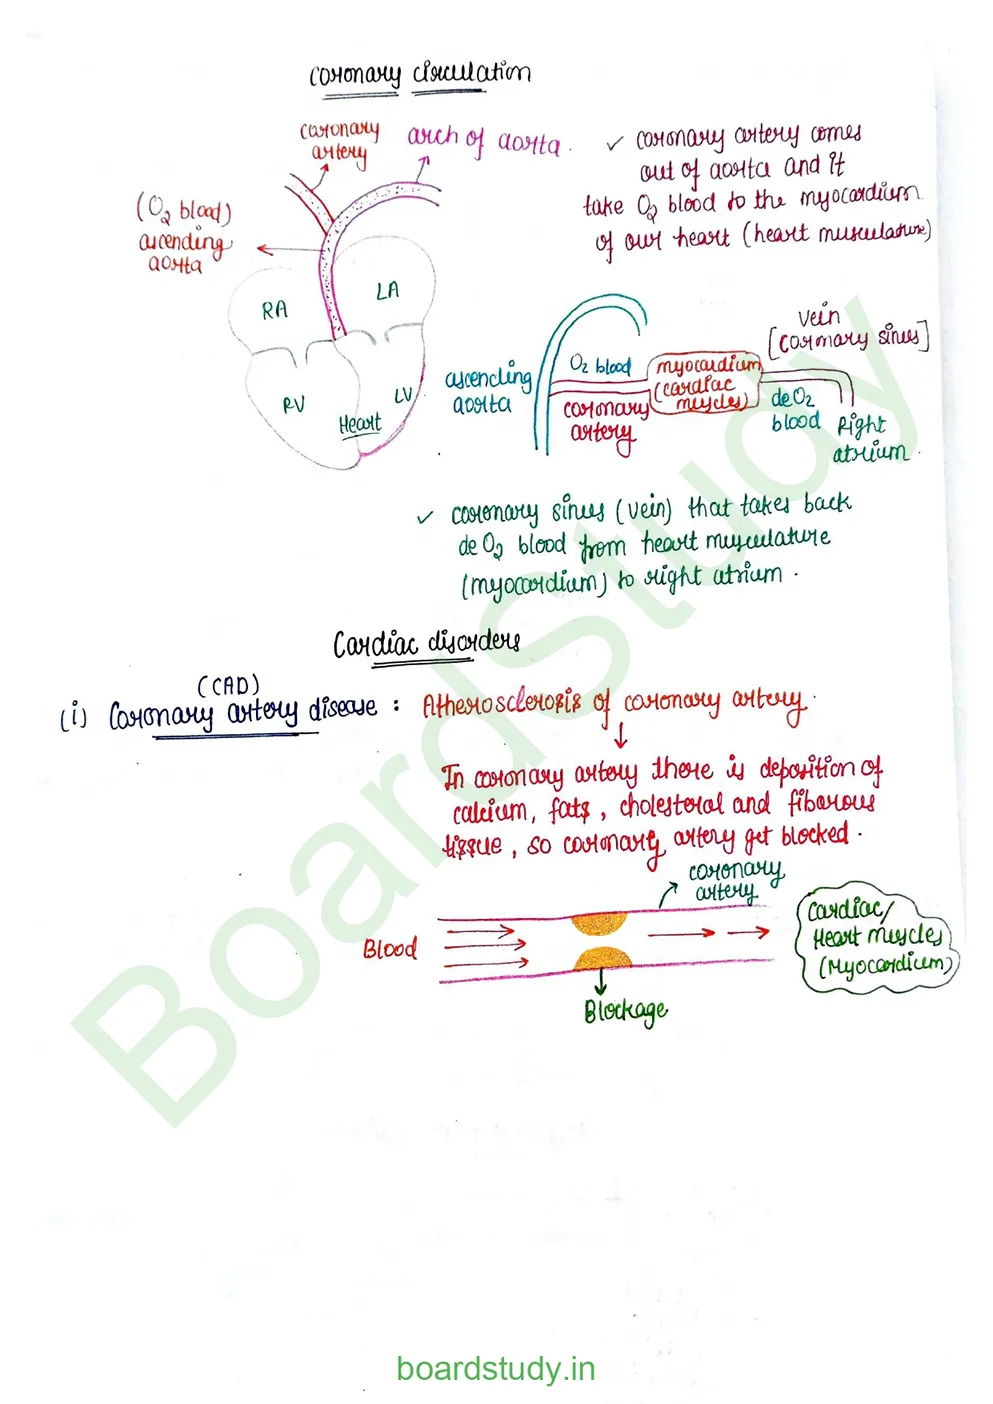 Coronary circulation
coronary
artery
arch of aorta.
(O2 blood)
ascending
aorta
RA
LA
RV
LV
Heart
✓ coronary artery comes
out of aorta and it
take O2 blood to the myocardium
of our heart (heart musculature)
ascending
aorta
O2 blood
coronary
artery
myocardium
(cardiac
muscles)
vein
[coronary sinus]
deO2
blood
Right
atrium.
✓ coronary sinus (vein) that takes back
deO2 blood from heart musculature
(myocardium) to right atrium.
Cardiac disorders
(CAD)
(i) Coronary artery disease : Atherosclerosis of coronary artery.
↓
In coronary artery there is deposition of
calcium, fats, cholesteral and fibarous
tissue, so coronary artery get blocked.
coronary
artery
Blood
Blockage
Cardiac/
Heart muscles
(Myocardium)
BoardStudy
boardstudy.in